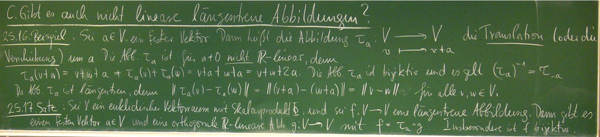 C. Gibt es auch nicht lineare längentreue Abbildungen?
25.16. Beispiel: Sei a∈V ein fester Vektor. Dann heißt die Abbildung τₐ: V → V die Translation (oder die
v ↦ v+a
Verschiebung) um a. Die Abb. τₐ ist für a≠0 nicht ℝ-linear, denn
τₐ(v+w) = v+w+a ≠ τₐ(v)+τₐ(w) = v+a+w+a = v+w+2a. Die Abb. τₐ ist bijektiv und es gilt (τₐ)⁻¹ = τ₋ₐ
Die Abb. τₐ ist längentreu, denn ‖τₐ(v)-τₐ(w)‖ = ‖(v+a)-(w+a)‖ = ‖v-w‖ für alle v,w∈V.
25.17. Satz: Sei V ein euklidischer Vektorraum mit Skalarprodukt, und sei f: V→V eine längentreue Abbildung. Dann gibt es
einen festen Vektor a∈V und eine orthogonale ℝ-lineare Abb. g: V→V mit f = τₐ∘g. Insbesondere ist f bijektiv.